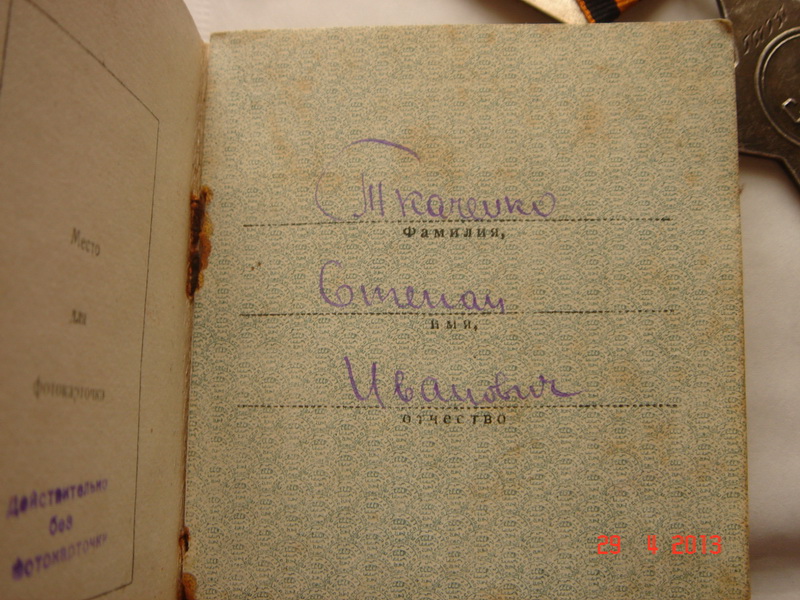 Место
для
фотокарточки
Действительно
без
фотокарточки
Ткаченко
Фамилия,
Степан
имя,
Иванович
отчество
29 4 2013